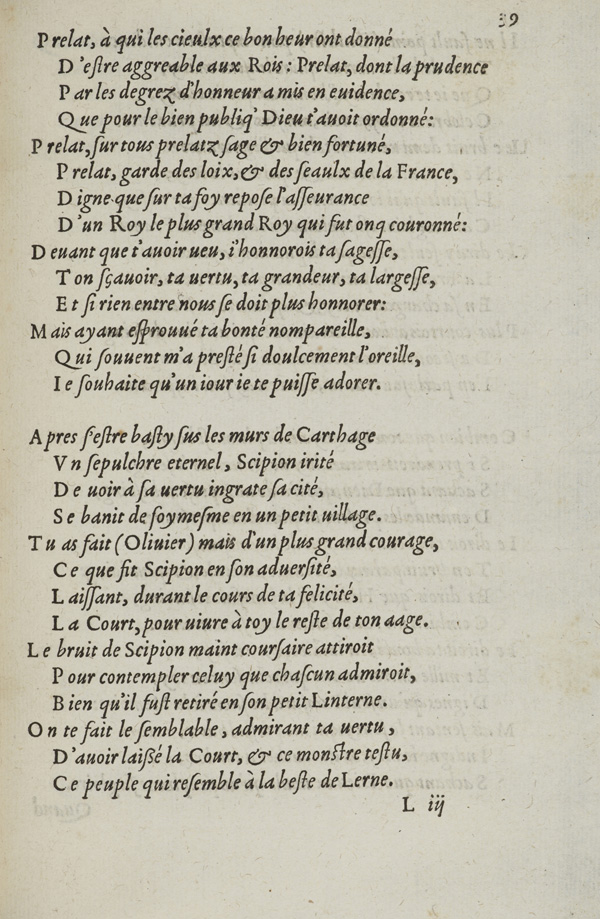 39
Prelat, à qui les cieulx ce bon heur ont donné
D'eſtre aggreable aux Rois: Prelat, dont la prudence
Par les degrez d'honneur a mis en euidence,
Que pour le bien publiq' Dieu t'auoit ordonné:
Prelat, ſur tous prelatz ſage & bien fortuné,
Prelat, garde des loix, & des ſeaulx de la France,
Digne que ſur ta foy repoſe l'aſſeurance
D'un Roy le plus grand Roy qui fut onq couronné:
Deuant que t'auoir ueu, i'honnorois ta ſageſſe,
Ton ſçauoir, ta uertu, ta grandeur, ta largeſſe,
Et ſi rien entre nous ſe doit plus honnorer:
Mais ayant eſprouué ta bonté nompareille,
Qui ſouuent m'a preſté ſi doulcement l'oreille,
Ie ſouhaite qu'un iour ie te puiſſe adorer.
Apres s'eſtre baſty ſus les murs de Carthage
Vn ſepulchre eternel, Scipion irité
De uoir à ſa uertu ingrate ſa cité,
Se banit de ſoymeſme en un petit uillage.
Tu as fait (Oliuier) mais d'un plus grand courage,
Ce que fit Scipion en ſon aduerſité,
Laiſſant, durant le cours de ta felicité,
La Court, pour uiure à toy le reſte de ton aage.
Le bruit de Scipion maint courſaire attiroit
Pour contempler celuy que chaſcun admiroit,
Bien qu'il fuſt retiré en ſon petit Linterne.
On te fait le ſemblable, admirant ta uertu,
D'auoir laißé la Court, & ce monſtre teſtu,
Ce peuple qui reſemble à la beſte de Lerne.
L iij